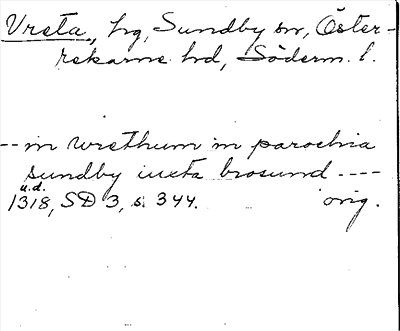 Vreta, hg, Sundby sn, Öster-
rekarne hd, Söderm. l.
-- in wrethum in parochia
sundby iuxta brosund ----
u.d.
1318, SD 3, s. 344. orig.